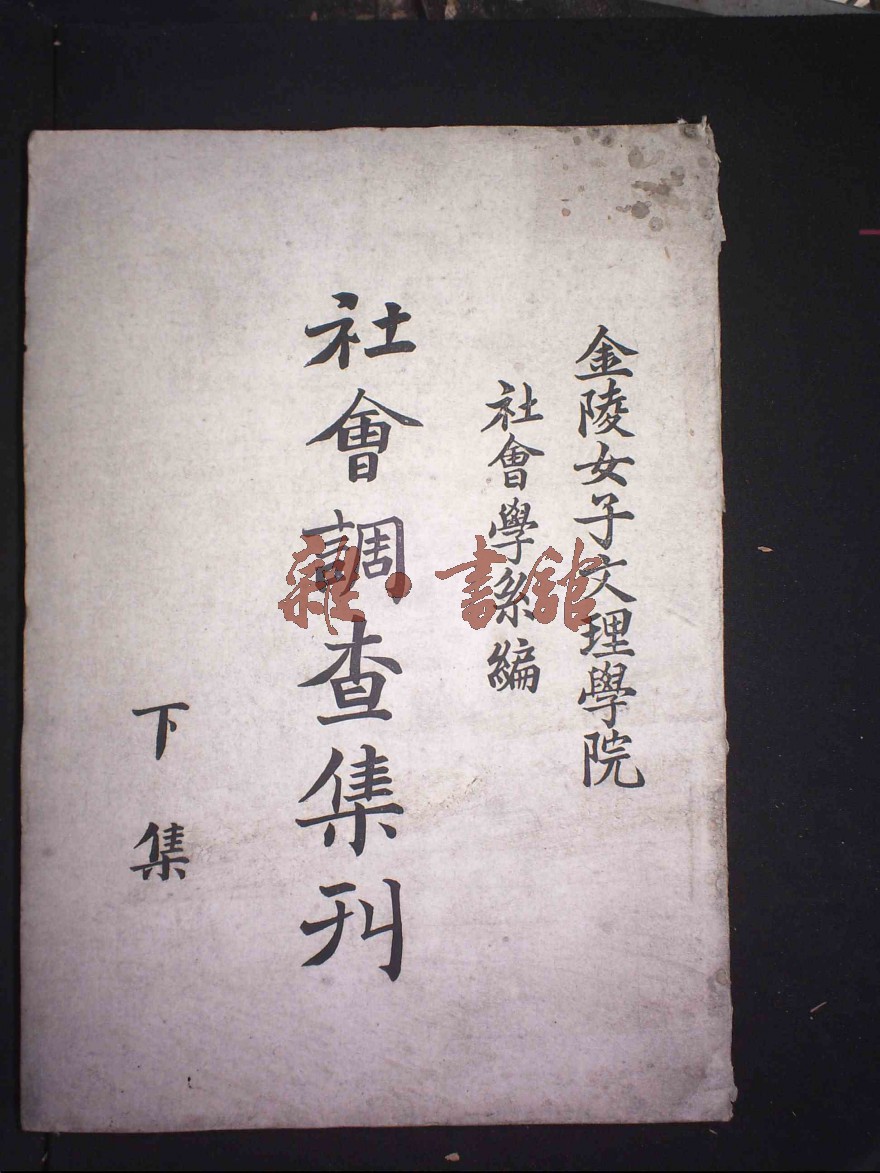 金陵女子文理學院
社會學系編
社會調查集刊
下集
雜·書館